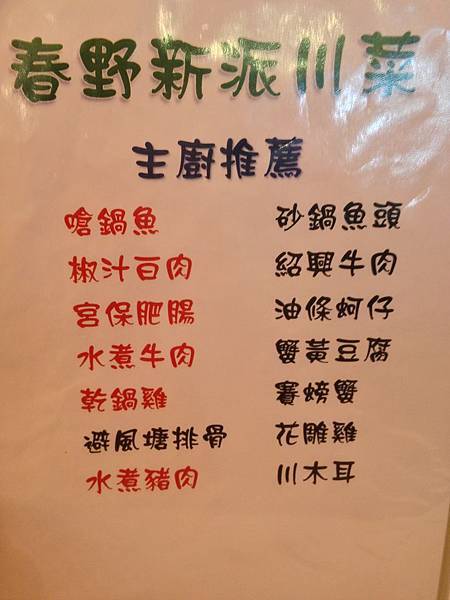 春野新派川菜
主廚推薦
嗆鍋魚
椒汁百肉
宮保肥腸
水煮牛肉
乾鍋雞
避風塘排骨
水煮豬肉
砂鍋魚頭
紹興牛肉
油條蚵仔
蟹黃豆腐
賽螃蟹
花雕雞
川木耳